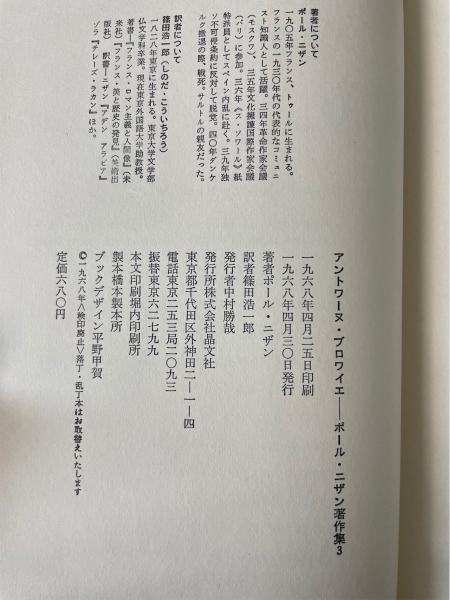 著者について
ポール・ニザン
一九〇五年フランス、トゥールに生まれる。
フランスの一九三〇年代の代表的なコミュニ
スト知識人として活躍。三四年革命作家会議
(モスクワ)、三五年文化擁護国際作家会議
(パリ)に参加。三六年《ス・ソワール》紙
特派員としてスペイン内乱に赴く。三九年独
ソ不可侵条約に反対して脱党。四〇年ダンケ
ルク撤退の際、戦死。サルトルの親友だった。
訳者について
篠田浩一郎(しのだ・こういちろう)
一九二八年東京に生まれる。東京大学文学部
仏文学科卒業。現在東京外国語大学助教授。
著書―『フランス・ロマン主義と人間像』(未
来社)『フランス・美と歴史の発見』(美術出
版社) 訳書―ニザン『アデン アラビア』
ゾラ『テレーズ・ラカン』ほか。
アントワーヌ・ブロワイエ――ポール・ニザン著作集3
一九六八年四月二五日印刷
一九六八年四月三〇日発行
著者ポール・ニザン
訳者篠田浩一郎
発行者中村勝哉
発行所株式会社晶文社
東京都千代田区外神田二―一―四
電話東京二五三局二〇九三
振替東京六二七九九
本文印刷堀内印刷所
製本橋本製本所
ブックデザイン平野甲賀
©一九六八年〈検印廃止〉落丁・乱丁本はお取替えいたします
定価六八〇円